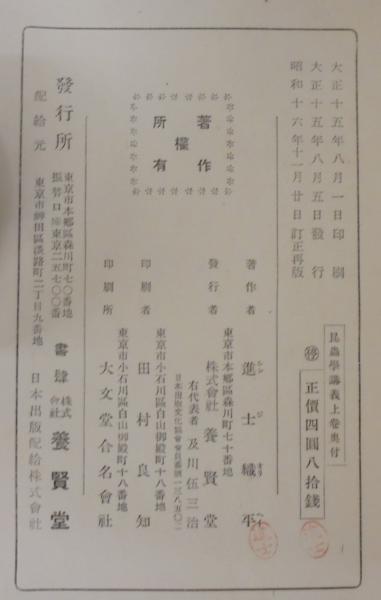 大正十五年八月一日印刷
大正十五年八月五日發行
昭和十六年十一月廿日訂正再版
昆蟲學講義上卷奧付
㊞正價四圓八拾錢
著作權所有
著作者 進士織平
シンジオリヘイ
東京市本鄕區森川町七十番地
發行者 株式會社 養賢堂
右代表者 及川伍三治
日本出版文化協會會員番號一三八五〇二
東京市小石川區白山御殿町十八番地
印刷者 田村良知
東京市小石川區白山御殿町十八番地
印刷所 大文堂合名會社
發行所
東京市本鄕區森川町七〇番地
振替口座東京二五七〇〇番
書肆 株式會社 養賢堂
配給元
東京市神田區淡路町二丁目九番地
日本出版配給株式會社